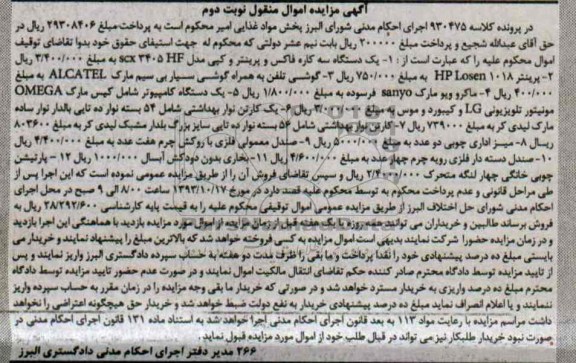 آگهی مزایده اموال منقول نوبت دوم
در پرونده کلاسه ۹۳۰۴۷۵ اجرای احکام مدنی شورای البرز پخش مواد غذایی امیر محکوم است به پرداخت مبلغ ۲۹۳۰۸۴۰۶ ریال در
حق آقای عبدالله شجیع و پرداخت مبلغ ۳۰۰۰۰۰ ریال بابت نیم عشر دولتی که محکوم له جهت استیفای حقوق خود بدوا تقاضای توقیف
اموال محکوم علیه را که عبارت است از : ۱- یک دستگاه سه کاره فاکس و پرینتر و کپی مدل scx ۳۴۰۵ HF به مبلغ ۳/۴۰۰/۰۰۰ ریال
۲- پرینتر HP Losen ۱۰۱۸ به مبلغ ۷۵۰/۰۰۰ ریال ۳- گوشی تلفن به همراه گوشی سیار بی سیم مارک ALCATEL به مبلغ
۴۰۰/۰۰۰ ریال ۴- ماکرو ویو مارک sanyo فرسوده به مبلغ ۱/۸۰۰/۰۰۰ ریال ۵- یک دستگاه کامپیوتر شامل کیس مارک OMEGA
مونیتور تلویزیونی LG و کیبورد و موس به مبلغ ۳/۰۰۰/۰۰۰ ریال ۶- یک کارتن نوار بهداشتی شامل ۵۴ بسته نوار ده تایی بالدار نوار ساده
مارک لیدی کر به مبلغ ۷۳۹۰۰۰ ریال ۷- کارتن نوار بهداشتی شامل ۵۶ بسته نوار ده تایی سایز بزرگ بلدار مشبک لیدی کر به مبلغ ۸۰۳۶۰۰
ریال ۸- میز اداری چوبی دو عدد به مبلغ ۵۰۰۰/۰۰۰ ریال ۹- صندل معمولی فلزی با روکش چرم هفت عدد به مبلغ ۴/۴۰۰/۰۰۰ ریال
۱۰- صندل دسته دار فلزی رویه چرم چهار عدد به مبلغ ۴/۶۰۰/۰۰۰ ریال ۱۱- بخاری بدون دودکش آبسال ۱/۰۰۰/۰۰۰ ریال ۱۲- پارتیشن
چوبی خانگی چهار لنگه متحرک ۲/۴۰۰/۰۰۰ ریال و سپس تقاضای فروش آن را از طریق مزایده عمومی نموده است که این اجرا پس از
طی مراحل قانونی و عدم پرداخت محکوم به توسط محکوم علیه قصد دارد در مورخ ۱۳۹۳/۱۰/۱۷ ساعت ۸/۰۰ الی ۹ صبح در محل اجرای
احکام مدنی شورای حل اختلاف البرز از طریق مزایده عمومی اموال توقیفی محکوم علیه را به قیمت پایه کارشناسی ۲۸/۲۹۲/۶۰۰ ریال به
فروش برساند طالبین و خریداران می توانند پنج روز تا یک هفته قبل از زمان مزایده از اموال مورد مزایده بازدید با هماهنگی این اجرا بازدید
و در زمان مزایده حضورا شرکت نمایند بدیهی است اموال مزایده به کسی فروخته خواهد شد که بالاترین مبلغ را پیشنهاد نمایند و خریدار می
بایستی مبلغ ده درصد پیشنهادی خود را نقدا پرداخت و ما بقی را ظرف مدت دو هفته به حساب سپرده دادگستری البرز واریز نمایند و پس
از تایید مزایده توسط دادگاه محترم صادر کننده حکم تقاضای انتقال مالکیت اموال نمایند و در صورت عدم حضور تایید مزایده توسط دادگاه
محترم مبلغ ده درصد واریزی به خریدار مسترد خواهد شد و در صورتی که خریدار ما بقی وجه مزایده را در زمان مقرر به حساب سپرده واریز
ننمایند و یا اعلام انصراف نماید مبلغ ده درصد پیشنهادی خریدار به نفع دولت ضبط خواهد شد و خریدار حق هیچگونه اعتراضی را نخواهد
داشت مراسم مزایده با رعایت مواد ۱۱۳ به بعد قانون اجرای احکام مدنی اجرا خواهد شد به استناد ماده ۱۳۱ قانون اجرای احکام مدنی در
صورت نبود خریدار طلبکار نیز می تواند در قبال طلب خود از اموال مورد مزایده قبول نماید.
۲۶۶ مدیر دفتر اجرای احکام مدنی دادگستری البرز